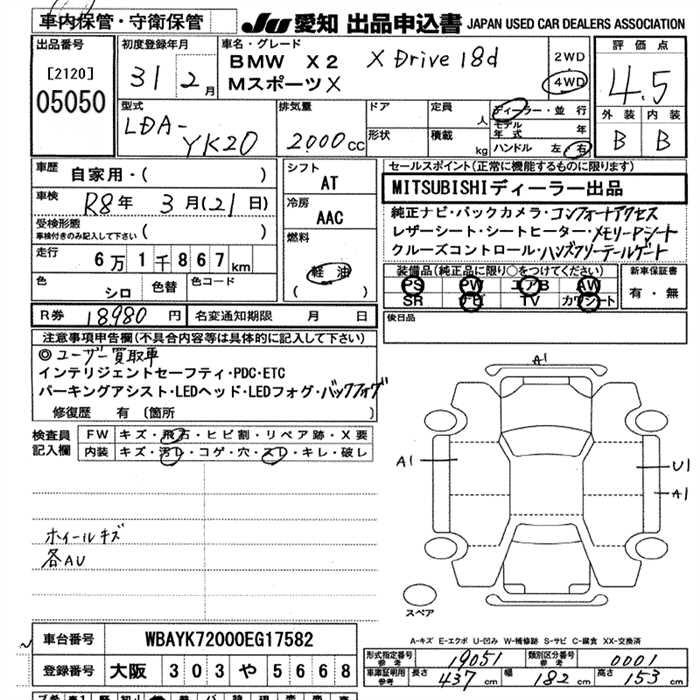 車内保管・守衛保管
JU 愛知 出品申込書 JAPAN USED CAR DEALERS ASSOCIATION
出品番号
[2120]
05050
初度登録年月
31 2月
車名・グレード
BMW X2 X Drive 18d
MスポーツX
2WD
4WD
評価点
4.5
外装 内装
B B
型式
LDA-
YK20
排気量
2000cc
ドア
形状
定員 人
積載 kg
ディーラー・並行
モデル年式 年
ハンドル 左・右
車歴
自家用・( )
車検
R8年 3月(21日)
受検形態
車検付きのみ記入して下さい ( )
走行
6万1千867km
色
シロ
色替
色コード
シフト
AT
冷房
AAC
燃料
軽油
( )
セールスポイント(正常に機能するものに限ります)
MITSUBISHIディーラー出品
純正ナビ・バックカメラ・コンフォートアクセス
レザーシート・シートヒーター・メモリーPシート
クルーズコントロール・ハンズフリーテールゲート
装備品(純正品に限り○をつけてください)
PS PW エアB AW
SR ナビ TV カワシート
新車保証書
有・無
R券 18980円
名変通知期限 月 日
後日品
注意事項申告欄(不具合内容等は具体的に記入して下さい)
◎ユーザー買取車
インテリジェントセーフティ・PDC・ETC
パーキングアシスト・LEDヘッド・LEDフォグ・バックフォグ
修復歴 有 (箇所 )
検査員記入欄
FW キズ・飛石・ヒビ割・リペア跡・X要
内装 キズ・汚レ・コゲ・穴・スレ・キレ・破レ
ホイールキズ
各AU
A1
A1
U1
A1
スペア
A-キズ E-エクボ U-凹み W-補修跡 S-サビ C-腐食 XX-交換済
車台番号 WBAYK72000EG17582
登録番号 大阪 303 や 5668
形式指定番号 参考 19051
類別区分番号 参考 0001
車庫証明用 参考 長さ 437 cm 幅 182 cm 高さ 153 cm